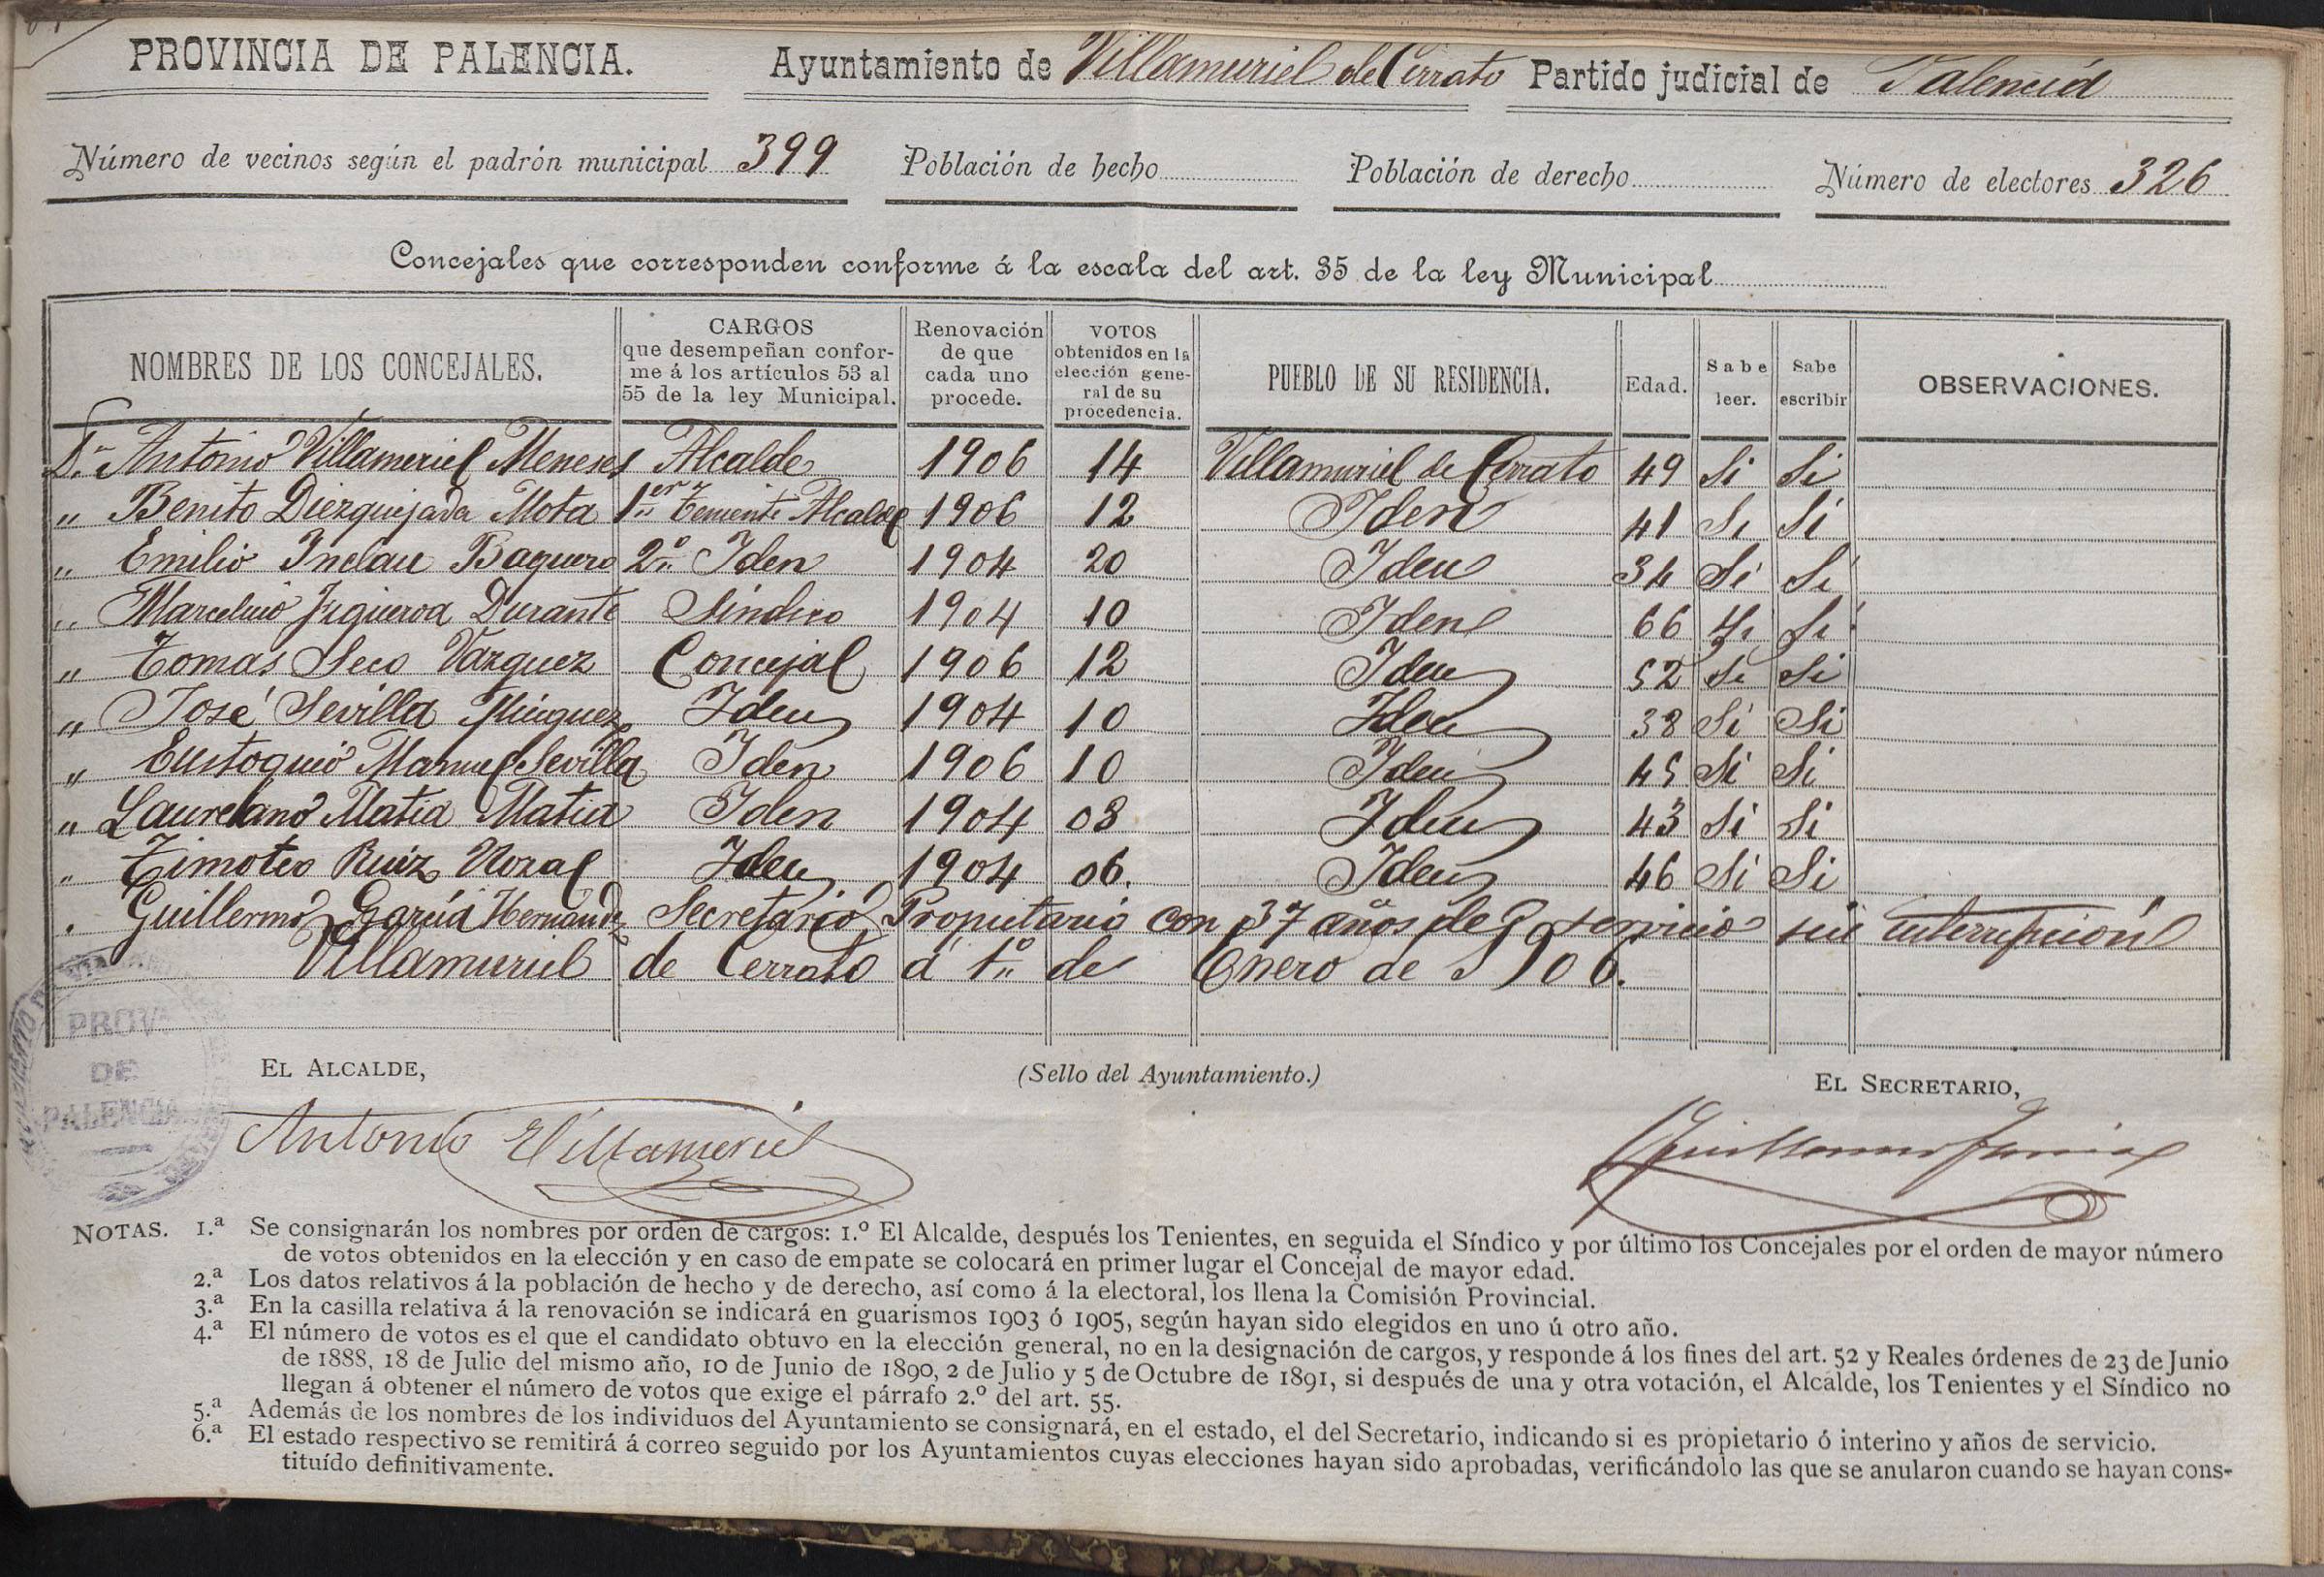 PROVINCIA DE PALENCIA. Ayuntamiento de Villamuriel de Cerrato Partido judicial de Palencia
Número de vecinos según el padrón municipal 399 Población de hecho Población de derecho Número de electores 326
Concejales que corresponden conforme á la escala del art. 35 de la ley Municipal
NOMBRES DE LOS CONCEJALES. CARGOS que desempeñan confor-me á los artículos 53 al 55 de la ley Municipal. Renovación de que cada uno procede. VOTOS obtenidos en la elección gene-ral de su procedencia. PUEBLO DE SU RESIDENCIA. Edad. Sabe leer. Sabe escribir OBSERVACIONES.
Dn Antonio Villameriel Meneses Alcalde 1906 14 Villamuriel de Cerrato 49 Si Si
„ Benito Diezquijada Mota 1er Teniente Alcalde 1906 12 Iden 41 Si Si
„ Emilio Inclau Baquero 2º Iden 1904 20 Iden 34 Si Si
„ Marcelino Figueroa Durante Sindico 1904 10 Iden 66 Si Si
„ Tomas Seco Vazquez Concejal 1906 12 Iden 52 Si Si
„ José Sevilla Minguez Iden 1904 10 Iden 38 Si Si
„ Eustoquio Manuel Sevilla Iden 1906 10 Iden 45 Si Si
„ Laureano Matia Matia Iden 1904 08 Iden 43 Si Si
„ Timoteo Ruiz Nozal Iden 1904 06. Iden 46 Si Si
„ Guillermo García Hernandz Secretario Propietario con 37 años de servicio sin interrupción
Villamuriel de Cerrato á 1º de Enero de 1906.
PROV
DE
PALENCIA
EL ALCALDE, (Sello del Ayuntamiento.) EL SECRETARIO,
Antonio Villameriel Guillermo Garcia
NOTAS. 1.ª Se consignarán los nombres por orden de cargos: 1.º El Alcalde, después los Tenientes, en seguida el Síndico y por último los Concejales por el orden de mayor número
de votos obtenidos en la elección y en caso de empate se colocará en primer lugar el Concejal de mayor edad.
2.ª Los datos relativos á la población de hecho y de derecho, así como á la electoral, los llena la Comisión Provincial.
3.ª En la casilla relativa á la renovación se indicará en guarismos 1903 ó 1905, según hayan sido elegidos en uno ú otro año.
4.ª El número de votos es el que el candidato obtuvo en la elección general, no en la designación de cargos, y responde á los fines del art. 52 y Reales órdenes de 23 de Junio
de 1888, 18 de Julio del mismo año, 10 de Junio de 1890, 2 de Julio y 5 de Octubre de 1891, si después de una y otra votación, el Alcalde, los Tenientes y el Síndico no
llegan á obtener el número de votos que exige el párrafo 2.º del art. 55.
5.ª Además de los nombres de los individuos del Ayuntamiento se consignará, en el estado, el del Secretario, indicando si es propietario ó interino y años de servicio.
6.ª El estado respectivo se remitirá á correo seguido por los Ayuntamientos cuyas elecciones hayan sido aprobadas, verificándolo las que se anularon cuando se hayan cons-
tituído definitivamente.